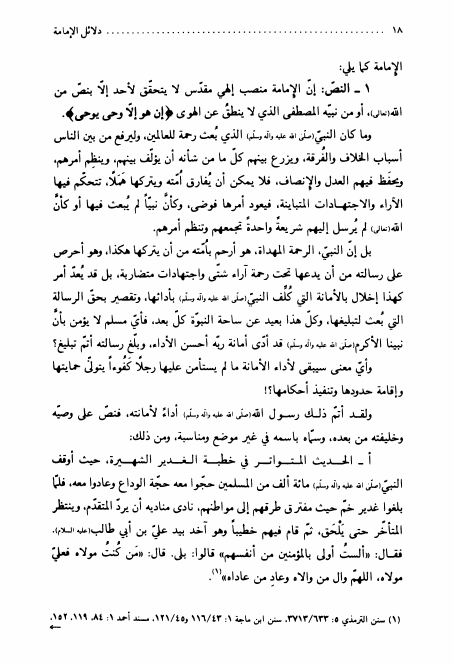 ١٨ ........ دلائل الإمامة
الإمامة كما يلي:
١ ـ النصّ: إنّ الإمامة منصب إلهي مقدّس لا يتحقّق لأحد إلّا بنصّ من
الله(تعالى)، أو من نبيّه المصطفى الذي لا ينطقُ عن الهوى ﴿إن هو إلّا وحى يوحى﴾.
وما كان النبيّ(صلّى الله عليه وآله وسلّم) الذي بُعث رحمة للعالمين، وليرفع من بين الناس
أسباب الخلاف والفُرقة، ويزرع بينهم كلّ ما من شأنه أن يؤلّف بينهم، وينظِم أمرهم،
ويحفظ فيهم العدل والإنصاف، فلا يمكن أن يُفارق أُمّته ويتركها هَمَلًا، تتحكّم فيها
الآراء والاجتهادات المتباينة، فيعود أمرها فوضى، وكأنّ نبيّاً لم يُبعث فيها أو كأنَّ
الله(تعالى) لم يُرسل إليهم شريعةً واحدةً تجمعهم وتنظم أمرهم.
بل إنّ النبيّ، الرحمة المهداة، هو أرحم بأُمّته من أن يتركها هكذا، وهو أحرص
على رسالته من أن يدعها تحت رحمة آراء شتّى واجتهادات متضاربة، بل قد يُعدّ أمر
كهذا إخلال بالأمانة التي كُلِّف النبيّ(صلّى الله عليه وآله وسلّم) بأدائها، وتقصير بحقّ الرسالة
التي بُعث لتبليغها، وكلّ هذا بعيد عن ساحة النبوّة كلّ بعد، فأيّ مسلم لا يؤمن بأنَّ
نبينا الأكرم(صلّى الله عليه وآله وسلّم) قد أدّى أمانة ربّه أحسن الأداء، وبلّغ رسالته أتمّ تبليغ؟
وأيّ معنى سيبقى لأداء الأمانة ما لم يستأمن عليها رجلًا كَفُوءاً يتولّى حمايتها
وإقامة حدودها وتنفيذ أحكامها؟!
ولقد أتمّ ذلك رسول الله(صلّى الله عليه وآله وسلّم) أداءً لأمانته، فنصّ على وصيّه
وخليفته من بعده، وسمّاه باسمه في غير موضع ومناسبة، ومن ذلك:
أ ـ الحديث المتواتر في خطبة الغدير الشهيرة، حيث أوقف
النبيّ(صلّى الله عليه وآله وسلّم) مائة ألف من المسلمين حجّوا معه حجّة الوداع وعادوا معه، فلمّا
بلغوا غدير خمّ حيث مفترق طرقهم إلى مواطنهم، نادى مناديه أن يردّ المتقدّم، وينتظر
المتأخّر حتى يَلْحَق، ثمّ قام فيهم خطيباً وهو آخد بيد عليّ بن أبي طالب(عليه السلام)،
فقال: «ألستُ أولى بالمؤمنين من أنفسهم» قالوا: بلى. قال: «مَن كُنتُ مولاه فعليّ
مولاه، اللهمّ وال من والاه وعادِ من عاداه»(١).
(١) سنن الترمذي ٥: ٣٧١٣/٦٣٣، سنن ابن ماجة ١: ١١٦/٤٣ و١٢١/٤٥، مسند أحمد ١: ٨٤، ١١٩، ١٥٢،
←